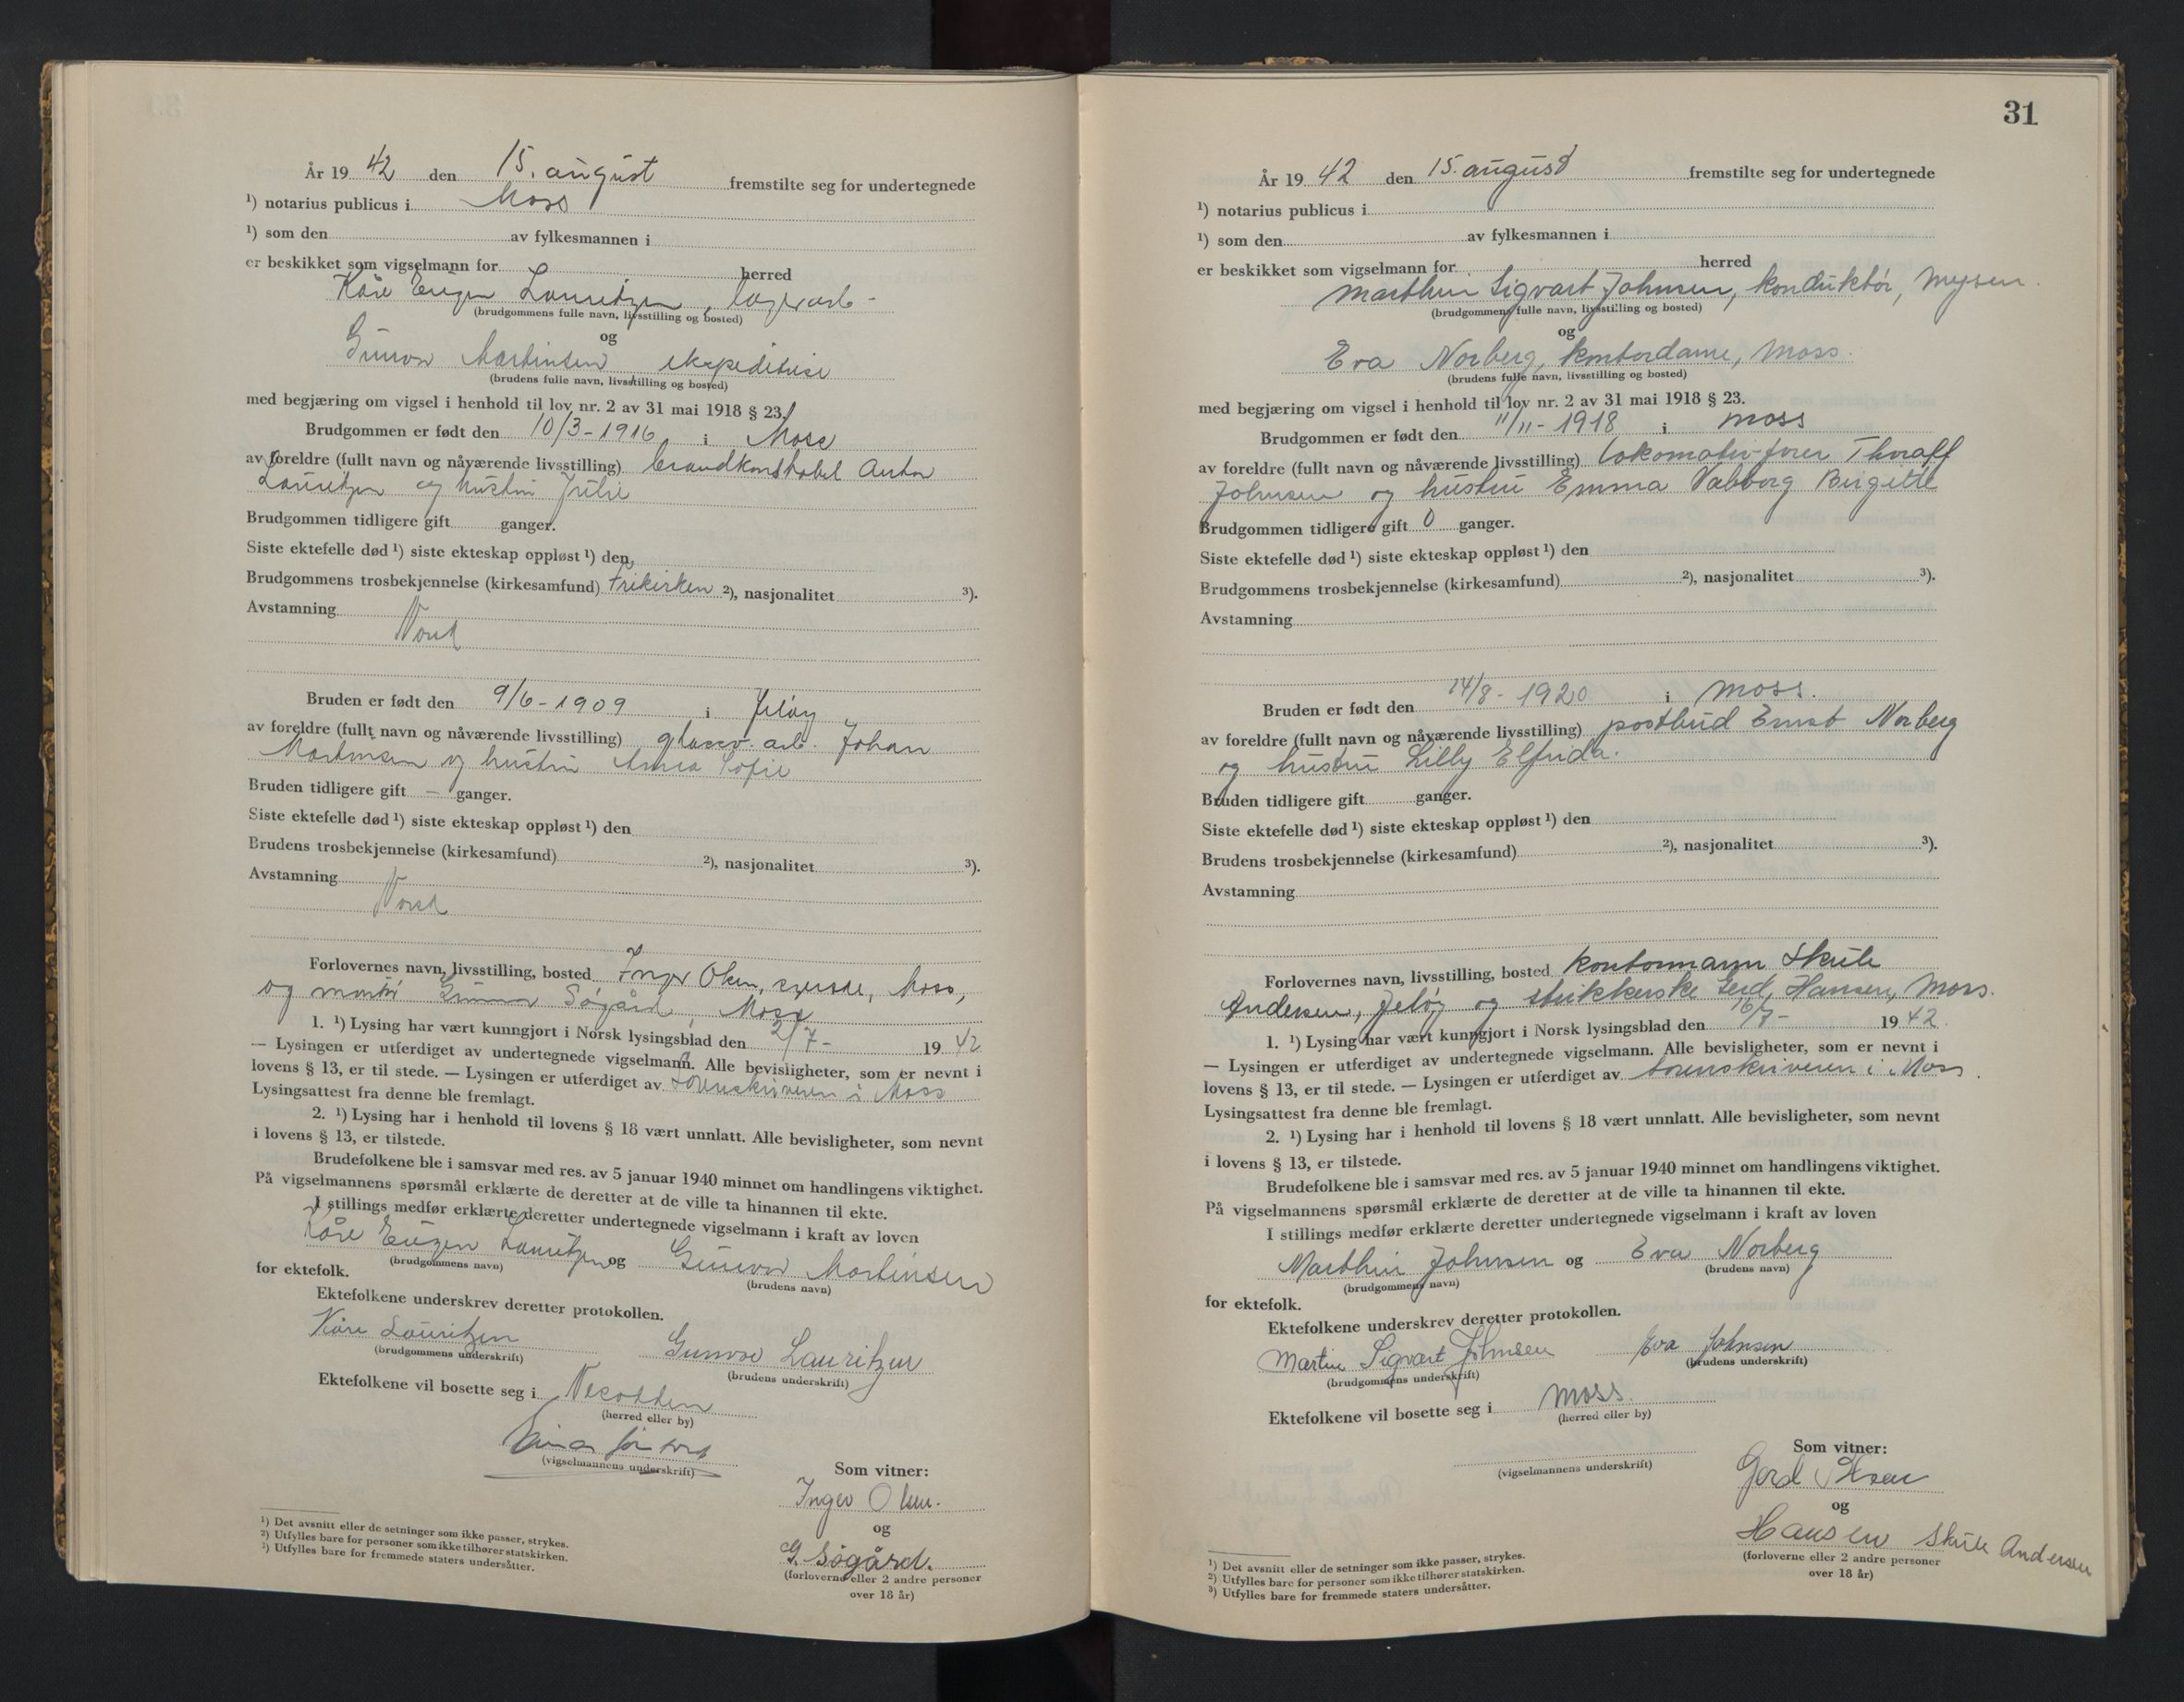 År 19 42 den 15. august fremstilte seg for undertegnede
¹) notarius publicus i Moss
¹) som den av fylkesmannen i
er beskikket som vigselmann for herred
Kåre Eugen Lauritzen, lagerarb-
(brudgommens fulle navn, livsstilling og bosted)
og
Gunvor Martinsen ekspeditrise
(brudens fulle navn, livsstilling og bosted)
med begjæring om vigsel i henhold til lov nr. 2 av 31 mai 1918 § 23.
Brudgommen er født den 10/3-1916 i Moss
av foreldre (fullt navn og nåværende livsstilling) brandkonstabel Anton
Lauritzen og hustru Julie
Brudgommen tidligere gift ganger.
Siste ektefelle død ¹) siste ekteskap oppløst ¹) den
Brudgommens trosbekjennelse (kirkesamfund) frikirken ²), nasjonalitet ³).
Avstamning
Norsk
Bruden er født den 9/6-1909 i Jeløy
av foreldre (fullt navn og nåværende livsstilling) glassv. arb. Johan
Martinsen og hustru Anna Sofie
Bruden tidligere gift – ganger.
Siste ektefelle død ¹) siste ekteskap oppløst ¹) den
Brudens trosbekjennelse (kirkesamfund) ²), nasjonalitet ³).
Avstamning
Norsk
Forlovernes navn, livsstilling, bosted Inger Olsen, Moss,
og montør Gunnar Søgård, Moss
1. ¹) Lysing har vært kunngjort i Norsk lysingsblad den 2/7- 19 42
— Lysingen er utferdiget av undertegnede vigselmann. Alle bevisligheter, som er nevnt i
lovens § 13, er til stede. — Lysingen er utferdiget av sorenskriveren i Moss
Lysingsattest fra denne ble fremlagt.
2. ¹) Lysing har i henhold til lovens § 18 vært unnlatt. Alle bevisligheter, som nevnt
i lovens § 13, er tilstede.
Brudefolkene ble i samsvar med res. av 5 januar 1940 minnet om handlingens viktighet.
På vigselmannens spørsmål erklærte de deretter at de ville ta hinannen til ekte.
I stillings medfør erklærte deretter undertegnede vigselmann i kraft av loven
Kåre Eugen Lauritzen og Gunvor Martinsen
(brudgommens navn) (brudens navn)
for ektefolk.
Ektefolkene underskrev deretter protokollen.
Kåre Lauritzen Gunvor Lauritzen
(brudgommens underskrift) (brudens underskrift)
Ektefolkene vil bosette seg i Nesodden
(herred eller by)
(vigselmannens underskrift)
Som vitner:
Inger Olsen.
og
G. Søgård.
(forloverne eller 2 andre personer
over 18 år)
¹) Det avsnitt eller de setninger som ikke passer, strykes.
²) Utfylles bare for personer som ikke tilhører statskirken.
³) Utfylles bare for fremmede staters undersåtter.
31
År 19 42 den 15. august fremstilte seg for undertegnede
¹) notarius publicus i
¹) som den av fylkesmannen i
er beskikket som vigselmann for herred
Marthin Sigvart Johnsen, konduktør, Mysen.
(brudgommens fulle navn, livsstilling og bosted)
og
Eva Norberg, kontordame, Moss.
(brudens fulle navn, livsstilling og bosted)
med begjæring om vigsel i henhold til lov nr. 2 av 31 mai 1918 § 23.
Brudgommen er født den 11/11-1918 i Moss
av foreldre (fullt navn og nåværende livsstilling) lokomotiv-fører Thoralf
Johnsen og hustru Emma Valborg Birgitte
Brudgommen tidligere gift 0 ganger.
Siste ektefelle død ¹) siste ekteskap oppløst ¹) den
Brudgommens trosbekjennelse (kirkesamfund) ²), nasjonalitet ³).
Avstamning
Bruden er født den 14/8-1920 i Moss.
av foreldre (fullt navn og nåværende livsstilling) postbud Ernst Norberg
og hustru Lilly Elfrida.
Bruden tidligere gift ganger.
Siste ektefelle død ¹) siste ekteskap oppløst ¹) den
Brudens trosbekjennelse (kirkesamfund) ²), nasjonalitet ³).
Avstamning
Forlovernes navn, livsstilling, bosted kontormann Skule
Andersen, Jeløy og strikkerske Gerd Hansen, Moss.
1. ¹) Lysing har vært kunngjort i Norsk lysingsblad den 16/7- 19 42.
— Lysingen er utferdiget av undertegnede vigselmann. Alle bevisligheter, som er nevnt i
lovens § 13, er til stede. — Lysingen er utferdiget av sorenskriveren i Moss.
Lysingsattest fra denne ble fremlagt.
2. ¹) Lysing har i henhold til lovens § 18 vært unnlatt. Alle bevisligheter, som nevnt
i lovens § 13, er tilstede.
Brudefolkene ble i samsvar med res. av 5 januar 1940 minnet om handlingens viktighet.
På vigselmannens spørsmål erklærte de deretter at de ville ta hinannen til ekte.
I stillings medfør erklærte deretter undertegnede vigselmann i kraft av loven
Marthin Johnsen og Eva Norberg
(brudgommens navn) (brudens navn)
for ektefolk.
Ektefolkene underskrev deretter protokollen.
Martin Sigvart Johnsen Eva Johnsen
(brudgommens underskrift) (brudens underskrift)
Ektefolkene vil bosette seg i Moss.
(herred eller by)
(vigselmannens underskrift)
Som vitner:
Gerd
og
Hansen Skule Andersen
(forloverne eller 2 andre personer
over 18 år)
¹) Det avsnitt eller de setninger som ikke passer, strykes.
²) Utfylles bare for personer som ikke tilhører statskirken.
³) Utfylles bare for fremmede staters undersåtter.